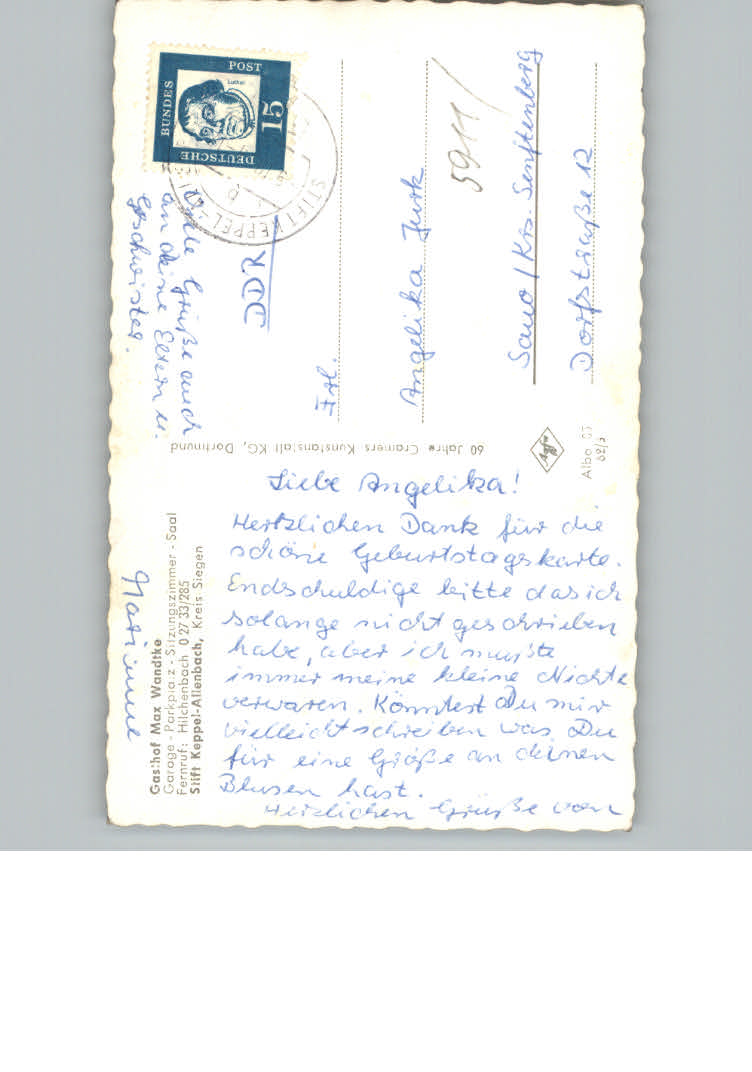 Liebe Angelika!
Hertzlichen Dank für die
schöne Geburtstagskarte.
Endschuldige bitte das ich
solange nicht geschrieben
habe, aber ich mußte
immer meine kleine Nichte
verwaren. Könntest Du mir
vielleicht schreiben was Du
für eine Größe an deinen
Blusen hast.
Herzlichen Grüße von
Marianne
Viele Grüße auch
an deine Eltern u.
Geschwister.
DDR
Frl.
Angelika Jurk
5911/
Sauo / Krs. Senftenberg
Dorfstraße 12
Gasthof Max Wandtke
Garage - Parkplatz - Sitzungszimmer - Saal
Fernruf: Hilchenbach 0 27 33/285
Stift Keppel-Allenbach, Kreis Siegen
60 Jahre Cramers Kunstanstalt KG, Dortmund
Agfa
DEUTSCHE
BUNDES
POST
Luther
15
STIFT KEPPEL-